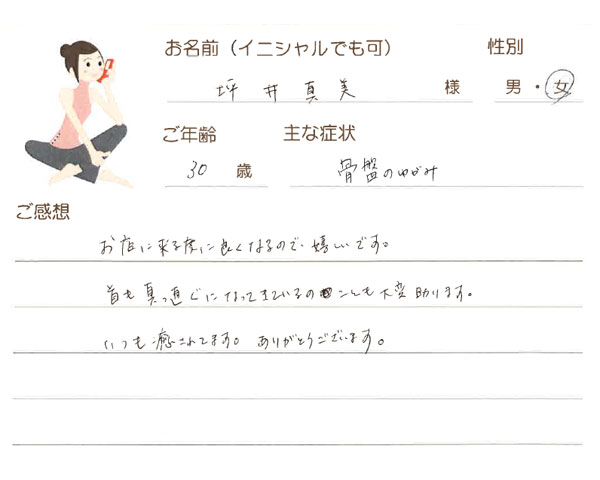 お名前（イニシャルでも可） 性別
坪井真美 様 男・女
ご年齢 主な症状
30 歳 骨盤のゆがみ
ご感想
お店に来る度に良くなるので、嬉しいです。
首も真っ直ぐになってきているの ことも大変助ります。
いつも癒されてます。ありがとうございます。